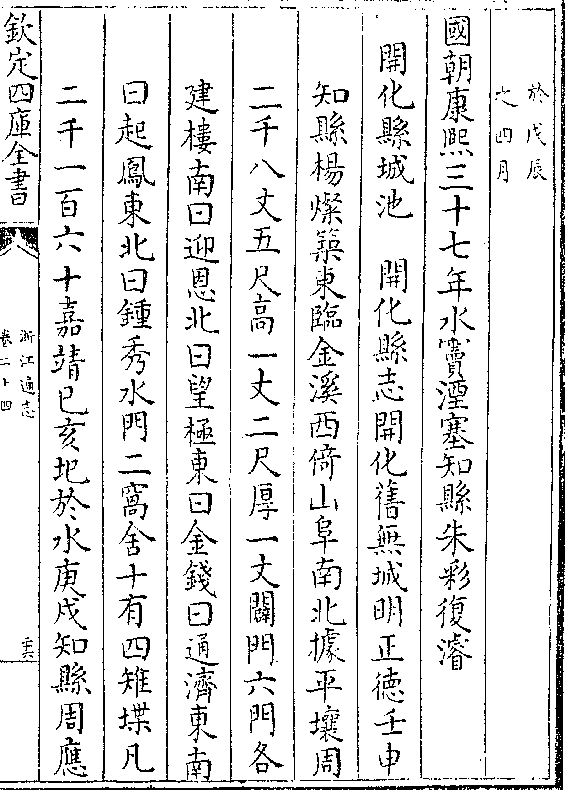 於戊辰
之四月
國朝康熙三十七年水竇湮塞知縣朱彩復濬
開化縣城池　開化縣志開化舊無城明正德壬申
知縣楊燦築東臨金溪西倚山阜南北據平壤周
二千八丈五尺高一丈二尺厚一丈闢門六門各
建樓南曰迎恩北曰望極東曰金錢曰通濟東南
曰起鳳東北曰鍾秀水門二窩舍十有四雉堞凡
二千一百六十嘉靖已亥圯於水庚戌知縣周應
欽定四庫全書
浙江通志
卷二十四